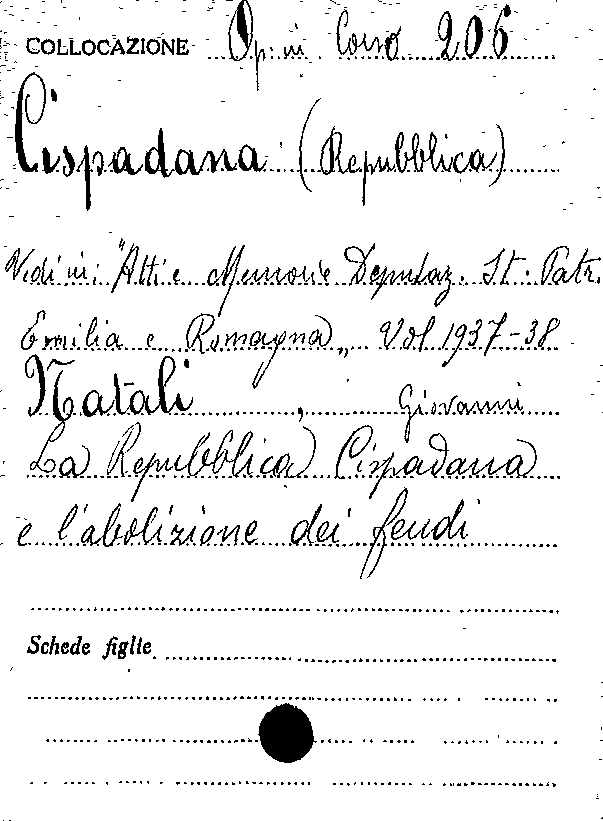 COLLOCAZIONE Op. in Corso 206
Cispadana (Repubblica)
Vedi in: "Atti e Memorie Deputaz. St. Patr.
Emilia e Romagna„ Vol 1937-38
Natali, Giovanni
La Repubblica Cispadana
e l'abolizione dei feudi
Schede figlie